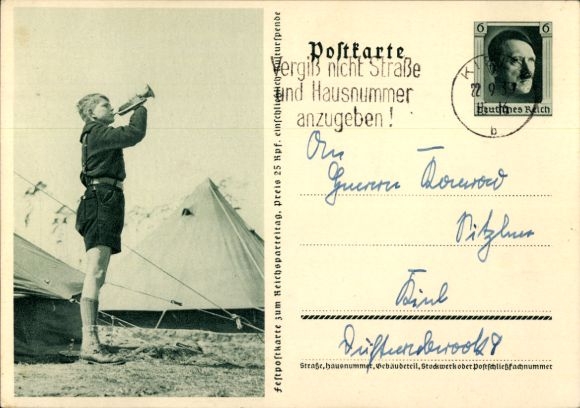 Festpostkarte zum Reichsparteitag. Preis 25 Rpf. einschließlich Kulturspende
Postkarte
Vergiß nicht Straße
und Hausnummer
anzugeben!
6 6
Deutsches Reich
22 9 37
b
An
Herrn Konrad
Kiel
Straße, Hausnummer, Gebäudeteil, Stockwerk oder Postschließfachnummer